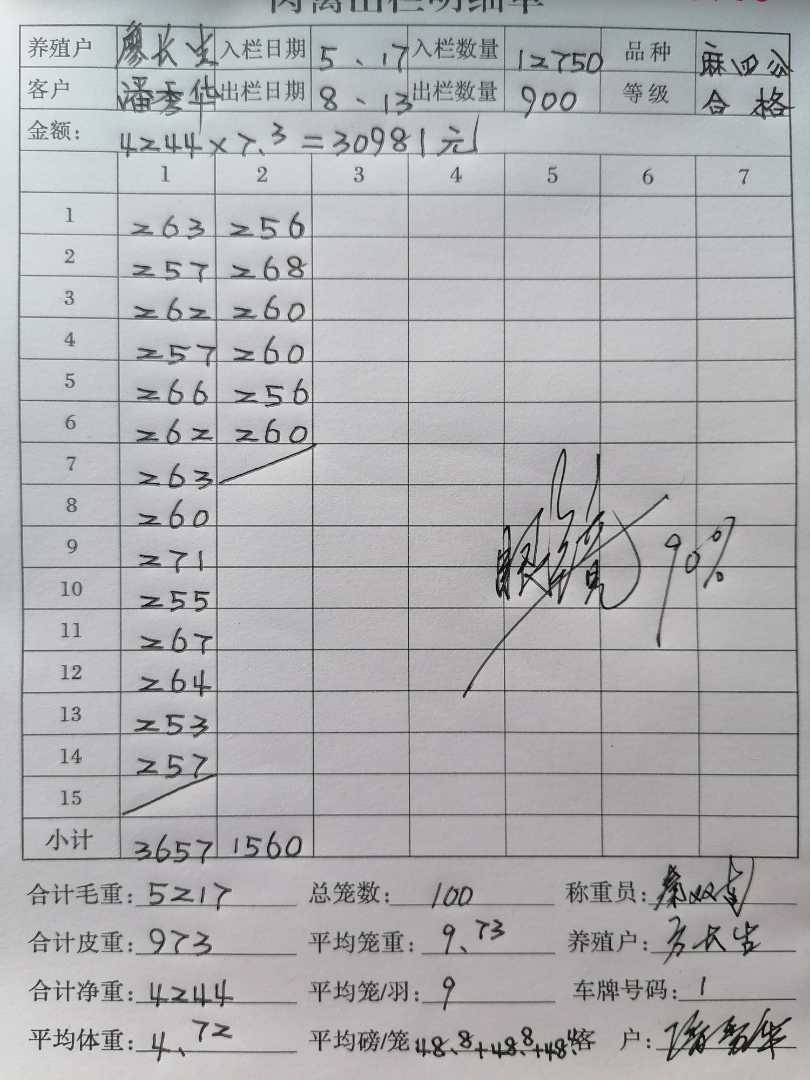 肉禽出栏明细单
养殖户 廖长生 入栏日期 5、17 入栏数量 12750 品种 麻四公
客户 潘秀华 出栏日期 8、13 出栏数量 900 等级 合格
金额: 4244×7.3=30981元
1 2 3 4 5 6 7
1 263 256
2 257 268
3 262 260
4 257 260
5 266 256
6 262 260
7 263
8 260
9 271
10 255
11 267
12 264
13 253
14 257
15
90%
小计 3657 1560
合计毛重: 5217 总笼数: 100 称重员:
合计皮重: 973 平均笼重: 9.73 养殖户: 廖长生
合计净重: 4244 平均笼/羽: 9 车牌号码: 1
平均体重: 4.72 平均磅/笼 48.8+48.8+48. 客户: 潘秀华